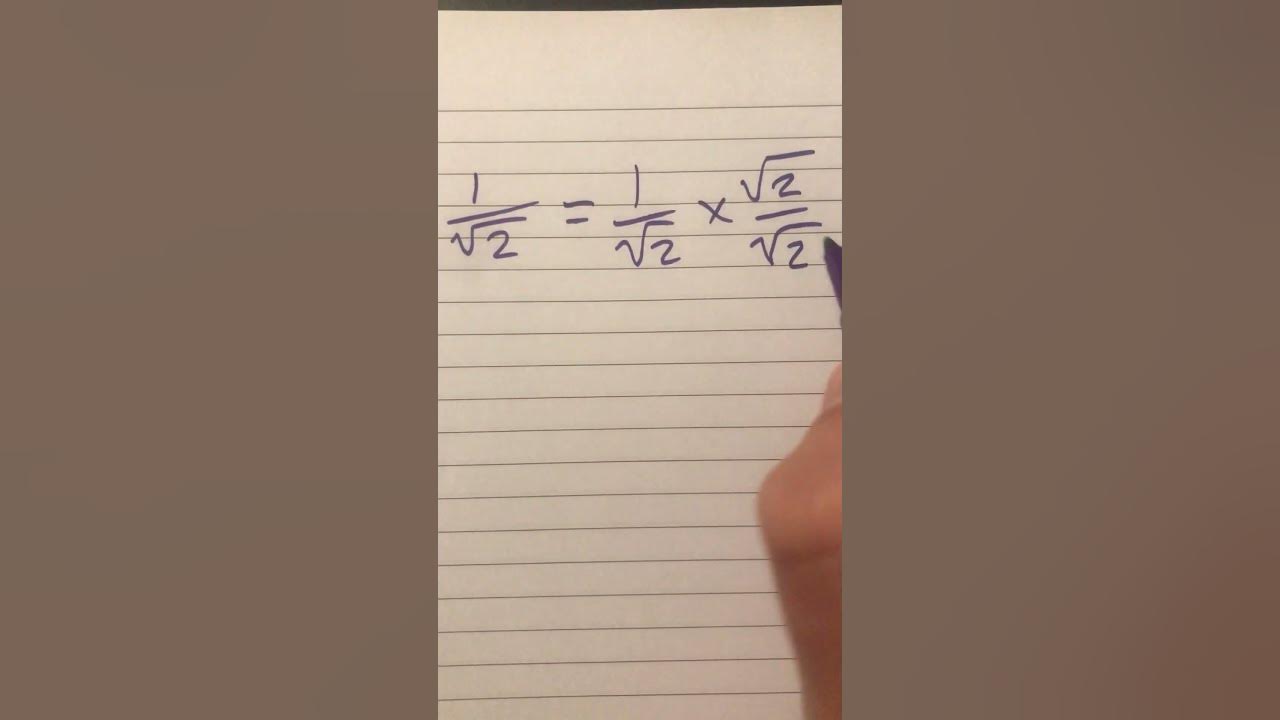 1/√2 = 1/√2 × √2/√2